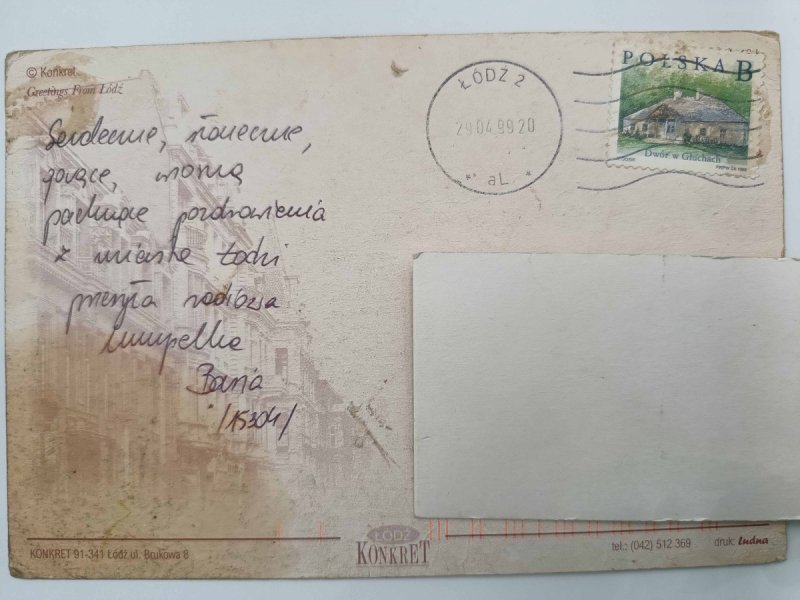 © Konkret
Greetings From Łódź
POLSKA B
Dwór w Głuchach
PWPW SA 1998
ŁÓDŹ 2
29.04.99 20
* aL *
Serdeczne, słoneczne,
gorące, wiosną
pachnące pozdrowienia
z miasta Łodzi
przesyła radiowa
kumpelka
Basia
/15304/
ŁÓDŹ
KONKRET
KONKRET 91-341 Łódź ul. Brukowa 8
tel.: (042) 512 369
druk: ludna